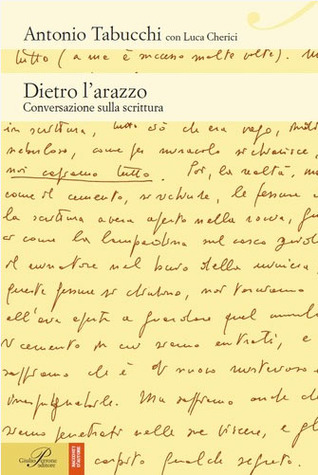 Antonio Tabucchi con Luca Cherici
tutto (a me è successo molte volte).
Dietro l'arazzo
Conversazione sulla scrittura
in scrittura, tutto ciò che era vago,
nebuloso, come per miracolo si chiarisce,
noi capiamo tutto. Poi, la realtà,
come il cemento, si richiude, le fessure
la scrittura aveva aperto nella roccia,
come la lampadina sul casco
il minatore nel buio della miniera,
queste fessure si chiudono, noi torniamo
all'aria aperta a guardare quel
cemento in cui siamo entrati, e
sappiamo che è di nuovo misterioso e
inespugnabile. Ma sappiamo anche che
siamo penetrati nelle sue viscere, e gli
carpito qualche segreto.
Giulio Perrone
editore